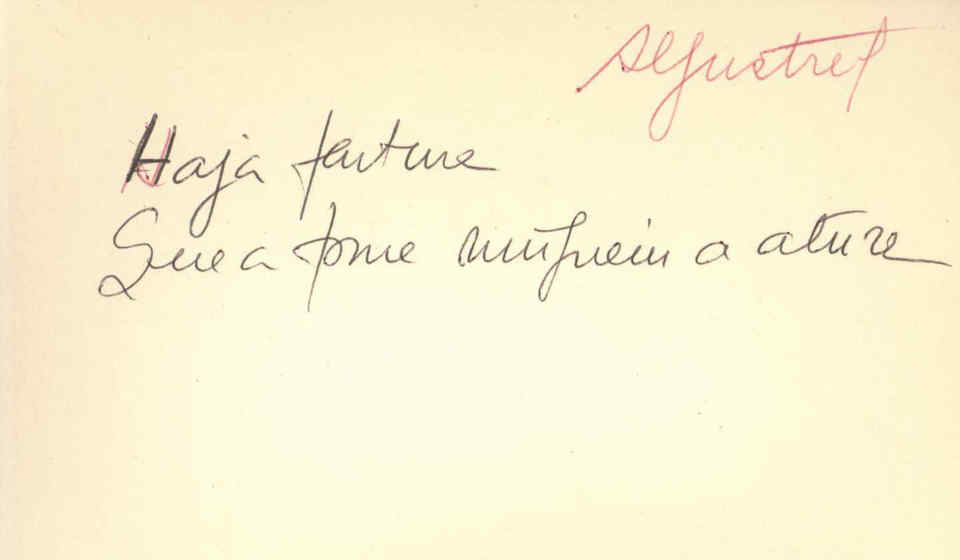 Aljustrel
Haja fartura
Que a fome ninguem a atura